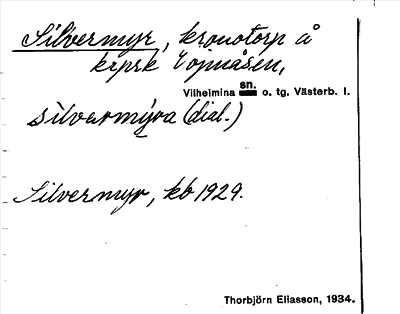 Silvermyr, kronotorp å
krpsk Lojmåsen,
Vilhelmina sn. o. tg. Västerb. l.
silvərmýra (dial.)
Silvermyr, kb 1929.
Thorbjörn Eliasson, 1934.